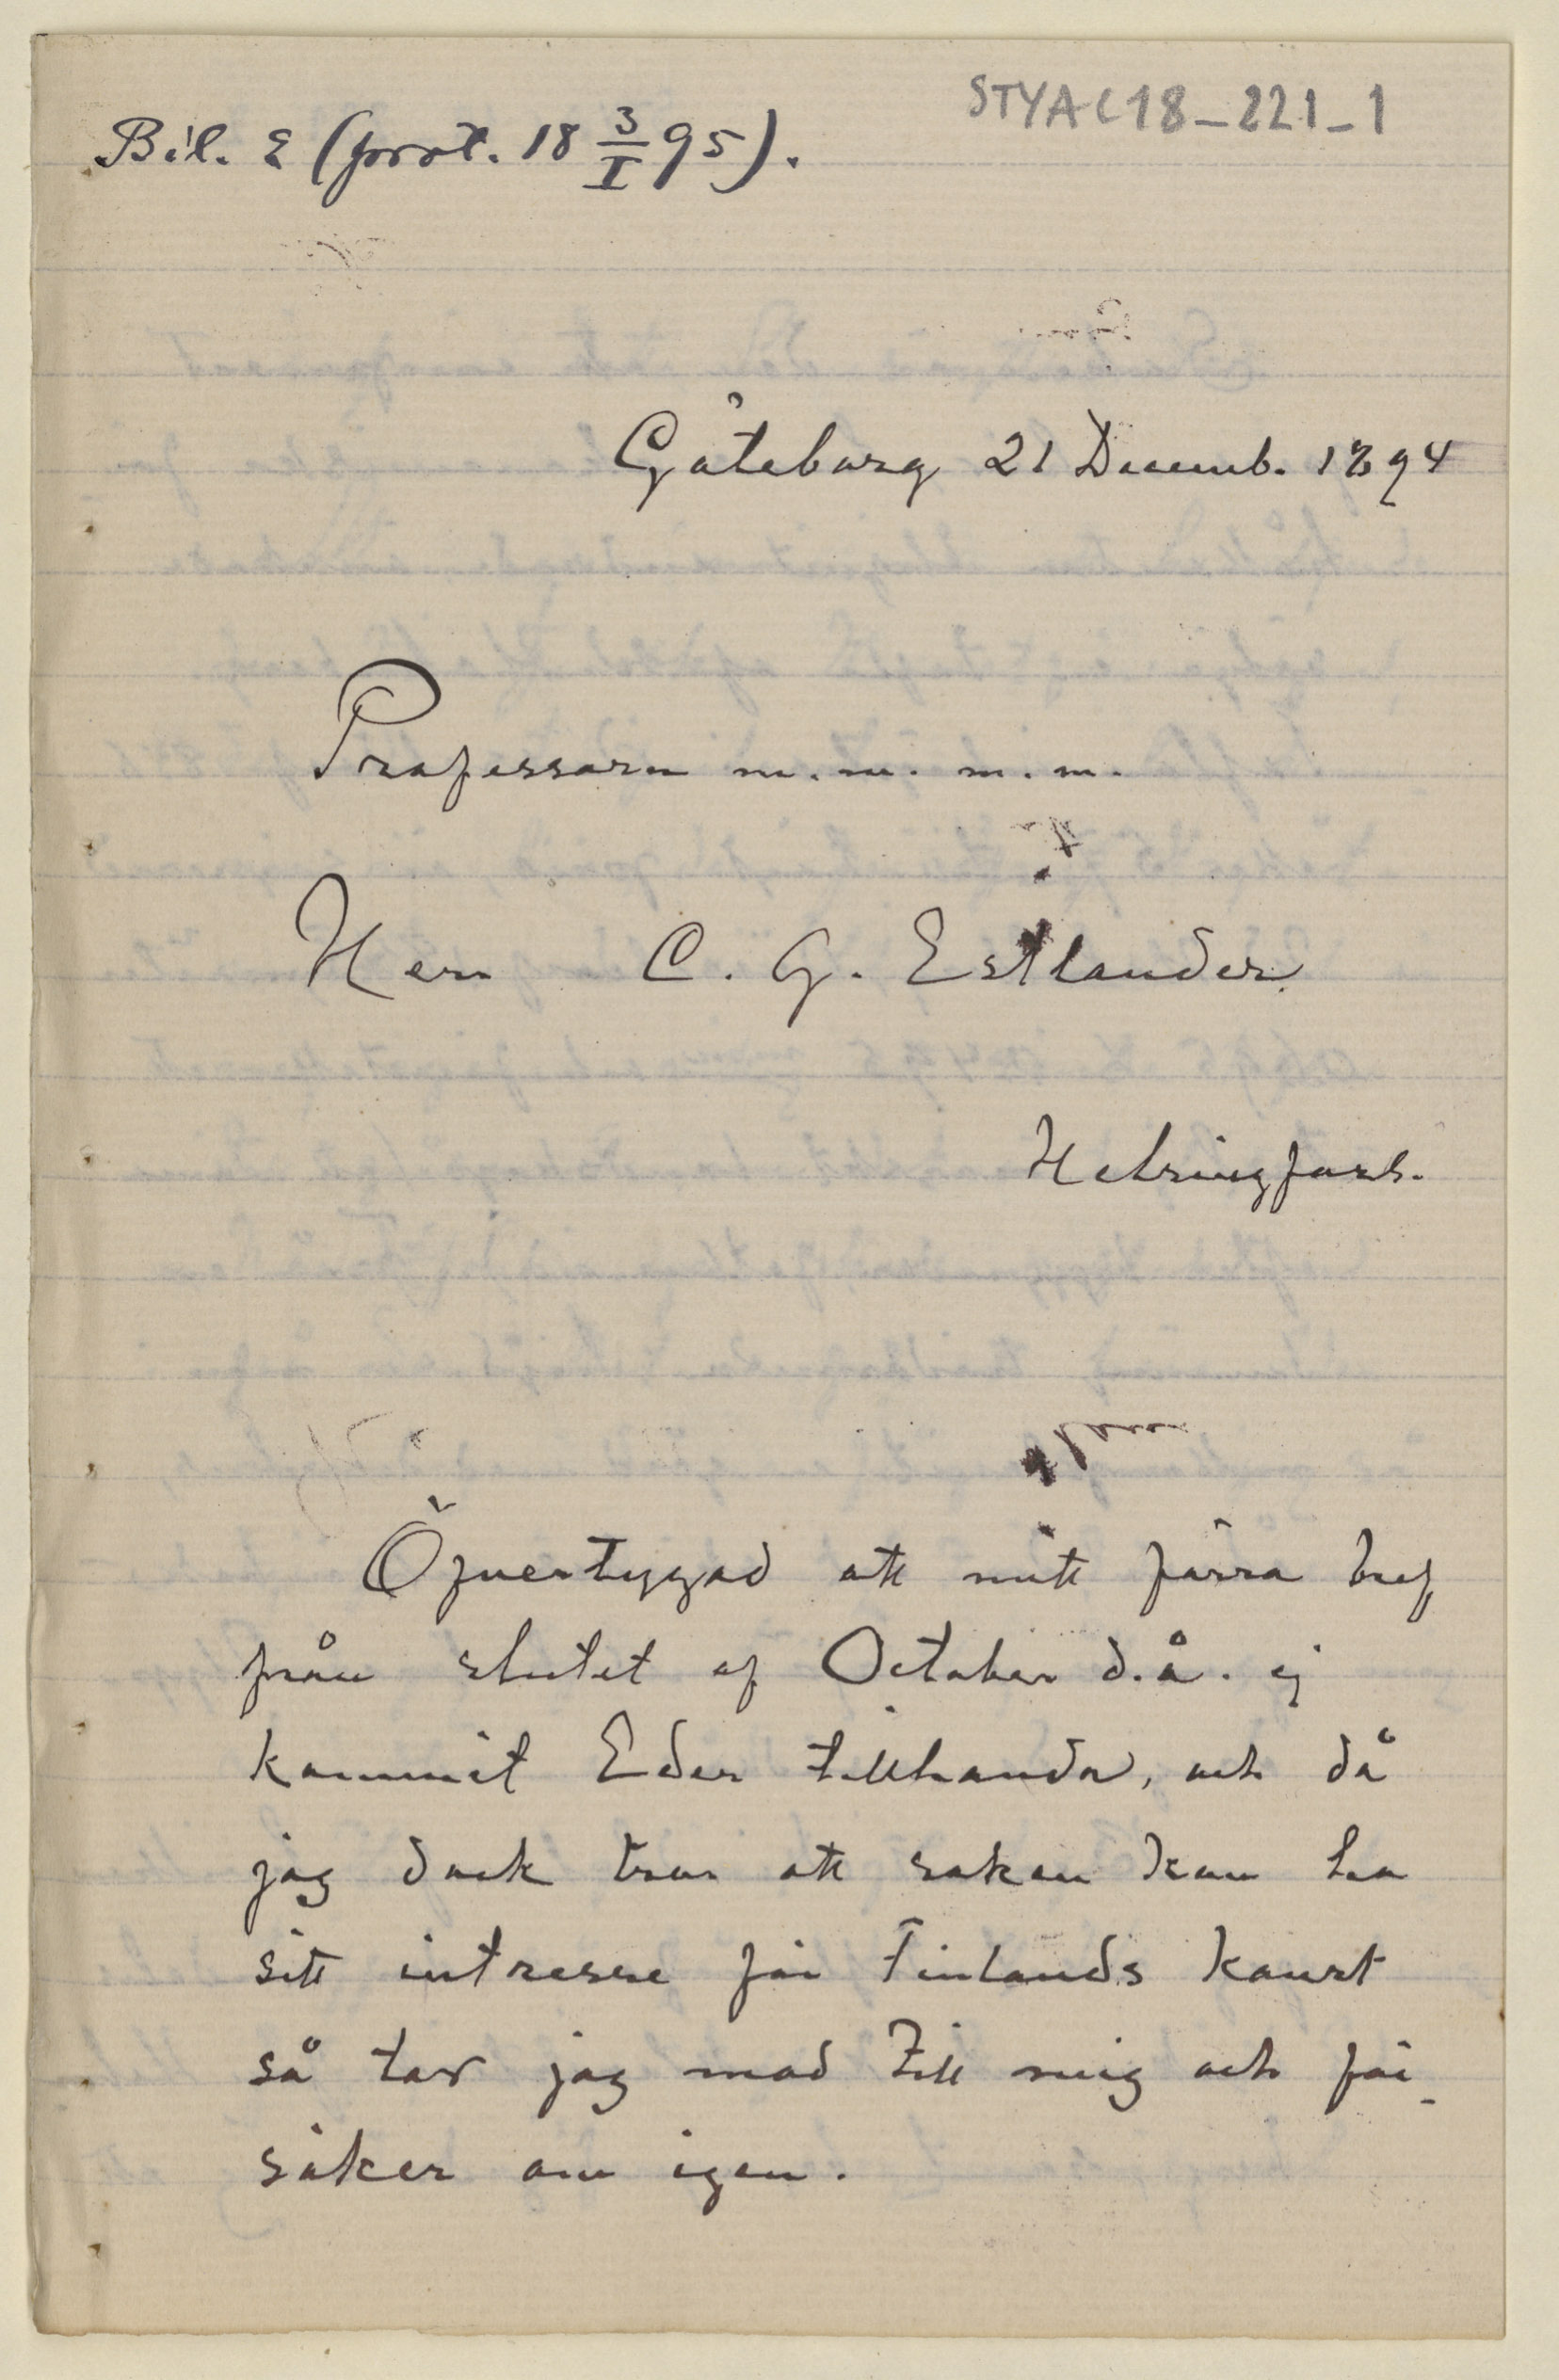 STYA C18_221_1
Bil. 2 (prot. 18 3/I 95).
Göteborg 21 Decemb. 1894
Professorn m.m. m.m.
Herr C. G. Estlander
Helsingfors.
Öfvertygad att mitt förra bref
från slutet af October d.å. ej
kommit Eder tillhanda, och då
jag dock tror att saken kan ha
sitt intresse för Finlands konst
så tar jag mod till mig och för-
söker om igen.